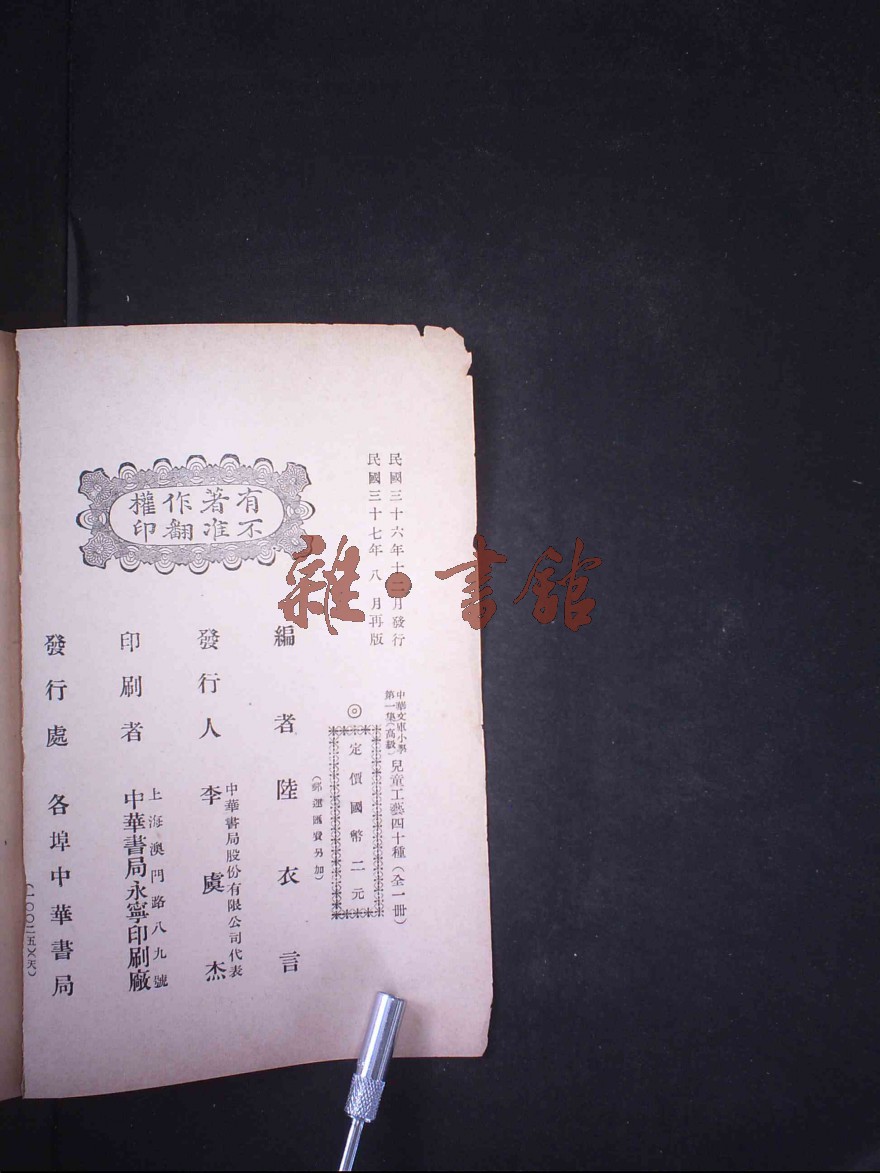 民國三十六年十二月發行
民國三十七年八月再版
中華文庫小學
第一集(高級)
兒童工藝四十種(全一冊)
◎定價國幣二元
(郵運匯費另加)
有著作權
不准翻印
編者 陸衣言
發行人 中華書局股份有限公司代表
李虞杰
印刷者 上海澳門路八九號
中華書局永寧印刷廠
發行處 各埠中華書局
(一〇〇二五)(天)
雜·書館